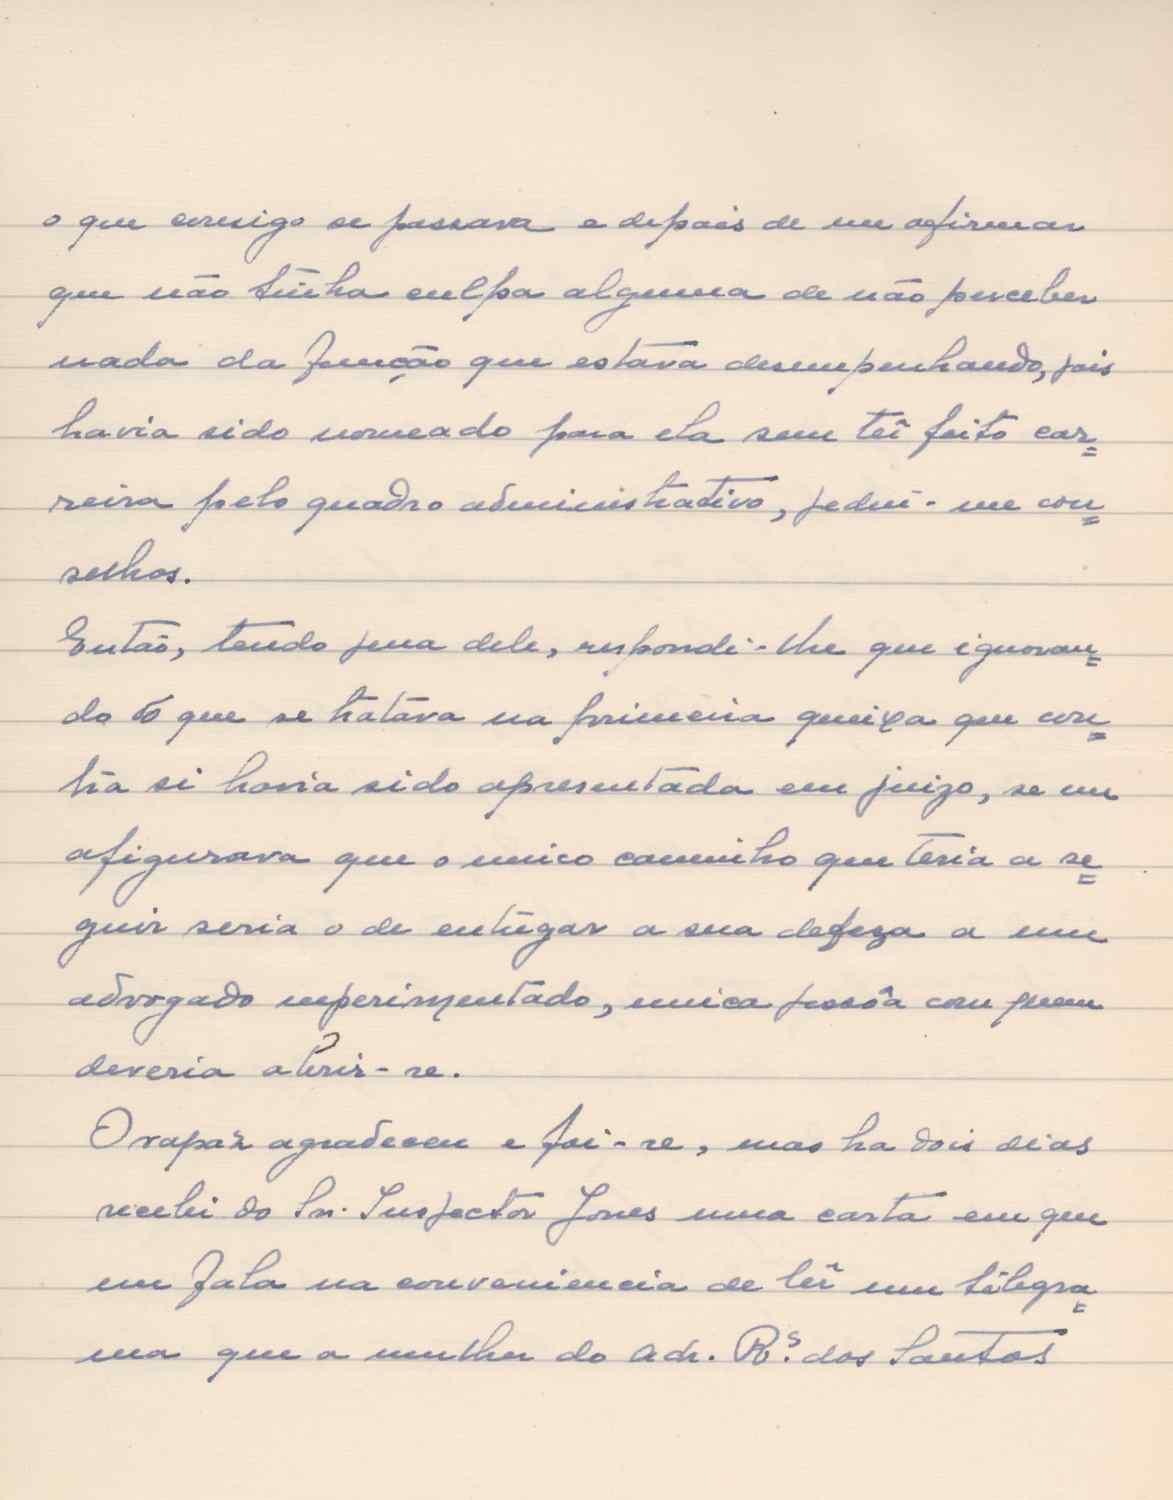 o que comsigo se passava e depois de me afirmar
que não tinha culpa alguma de não perceber
nada da função que estava desempenhando, pois
havia sido nomeado para ela sem ter feito car=
reira pelo quadro administrativo, pediu-me con=
selhos.
Então, tendo pena dele, respondi-lhe que ignoran=
do o que se tratava na primeira queixa que con=
tra si havia sido apresentada em juizo, se me
afigurava que o unico caminho que teria a se=
guir seria o de entregar a sua defeza a um
advogado experimentado, unica pessôa com quem
deveria abrir-se.
O rapaz agradeceu e foi-se, mas ha dois dias
recebi do Sr. Inspector Jones uma carta em que
me fala na conveniencia de ler um telegra=
ma que a mulher do adr. R.s dos Santos